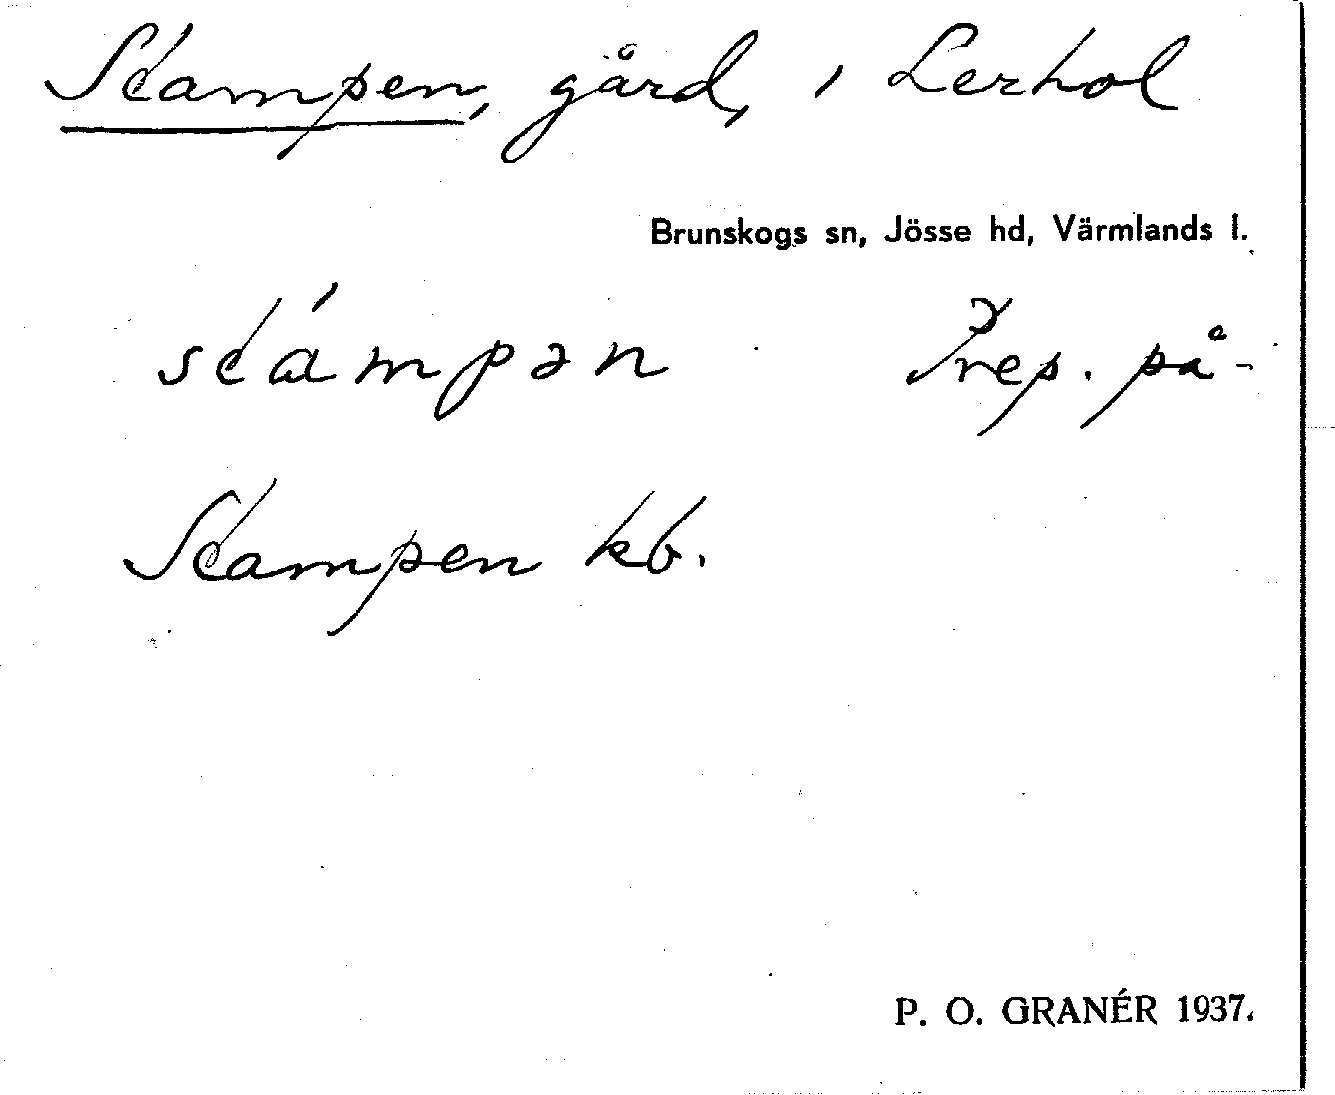 Stampen, gård, i Lerhol
Brunskogs sn, Jösse hd, Värmlands l.
stámpən Prep. på-
Stampen kb.
P. O. GRANÉR 1937.